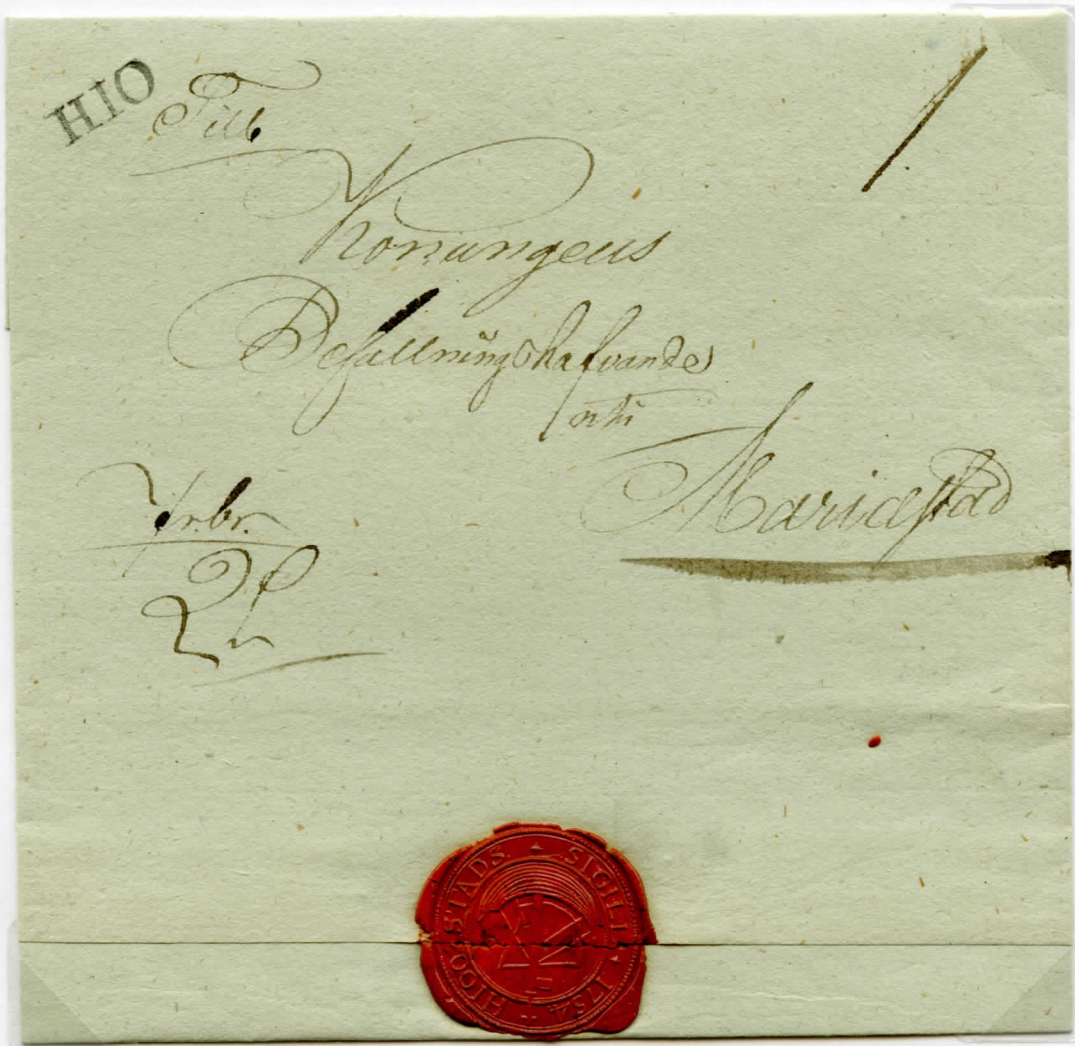 HIO
Till
Konungens
Befallningshafvande
uti
Mariæstad
frbr.
HIO STADS SIGILL 1754